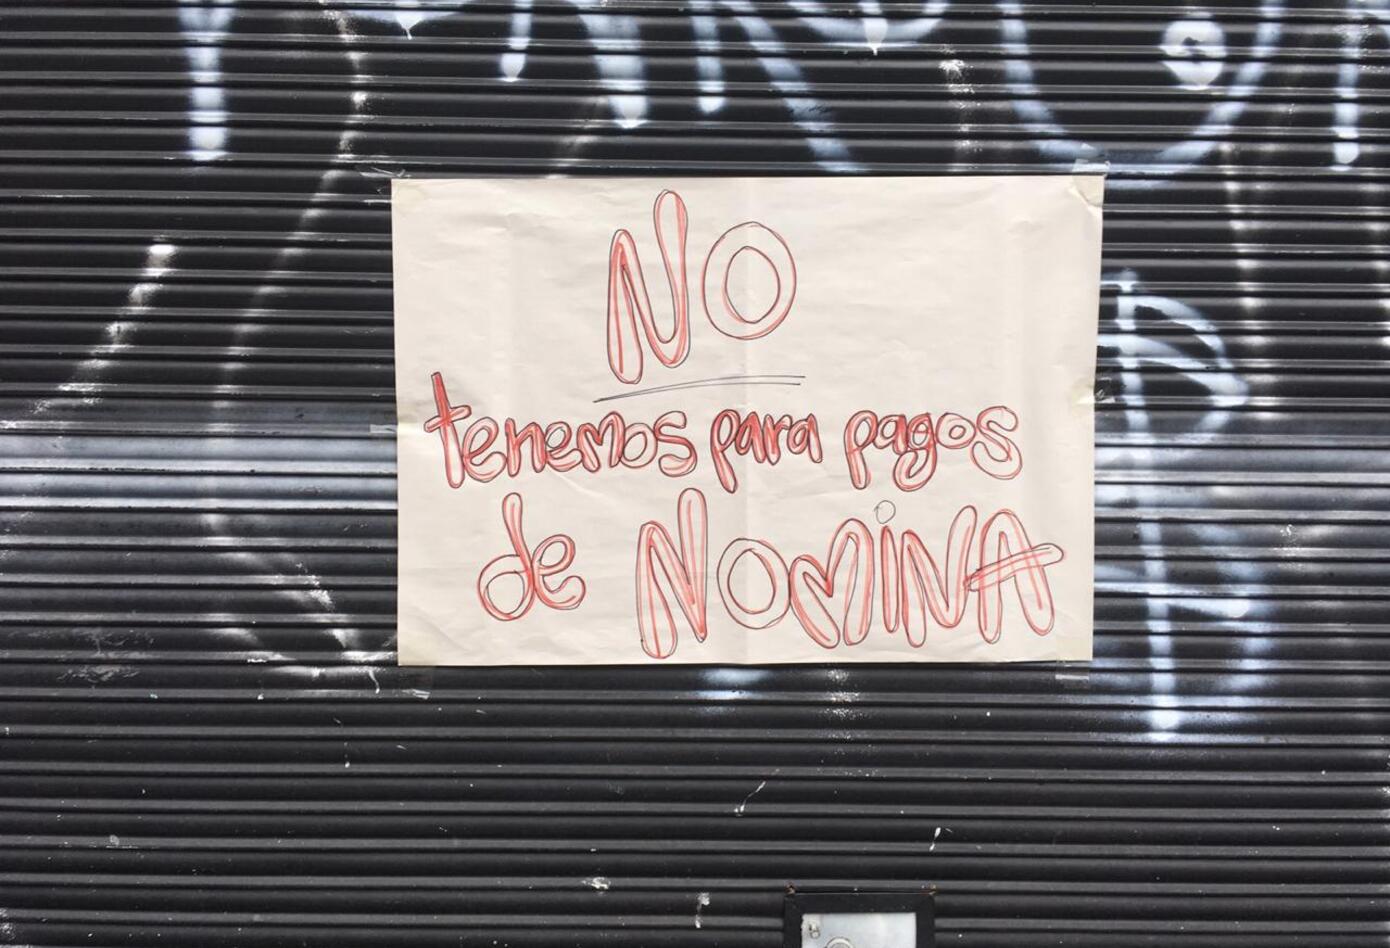 NO
tenemos para pagos
de NOMiNA